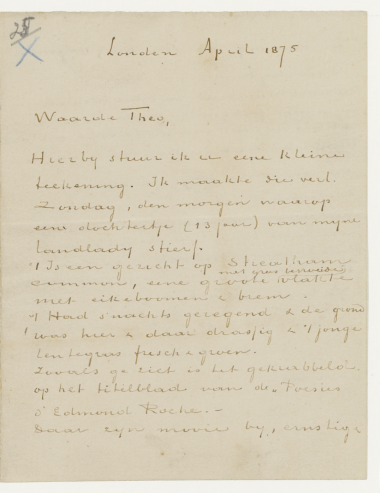 25
X
Londen April 1875
Waarde Theo,
Hierby stuur ik u eene kleine
teekening. Ik maakte die verl.
Zondag, den morgen waarop
een dochtertje (13 jaar) van myne
landlady stierf.
't Is een gezicht op Streatham
common, eene groote vlakte
met gras begroeid
met eikeboomen & brem.
't Had s'nachts geregend & de grond
was hier & daar drassig & 't jonge
lentegras frisch & groen.
Zooals ge ziet is het gekrabbeld
op het titelblad van de „Poesies
d'Edmond Roche.–
Daar zyn mooie by, ernstige